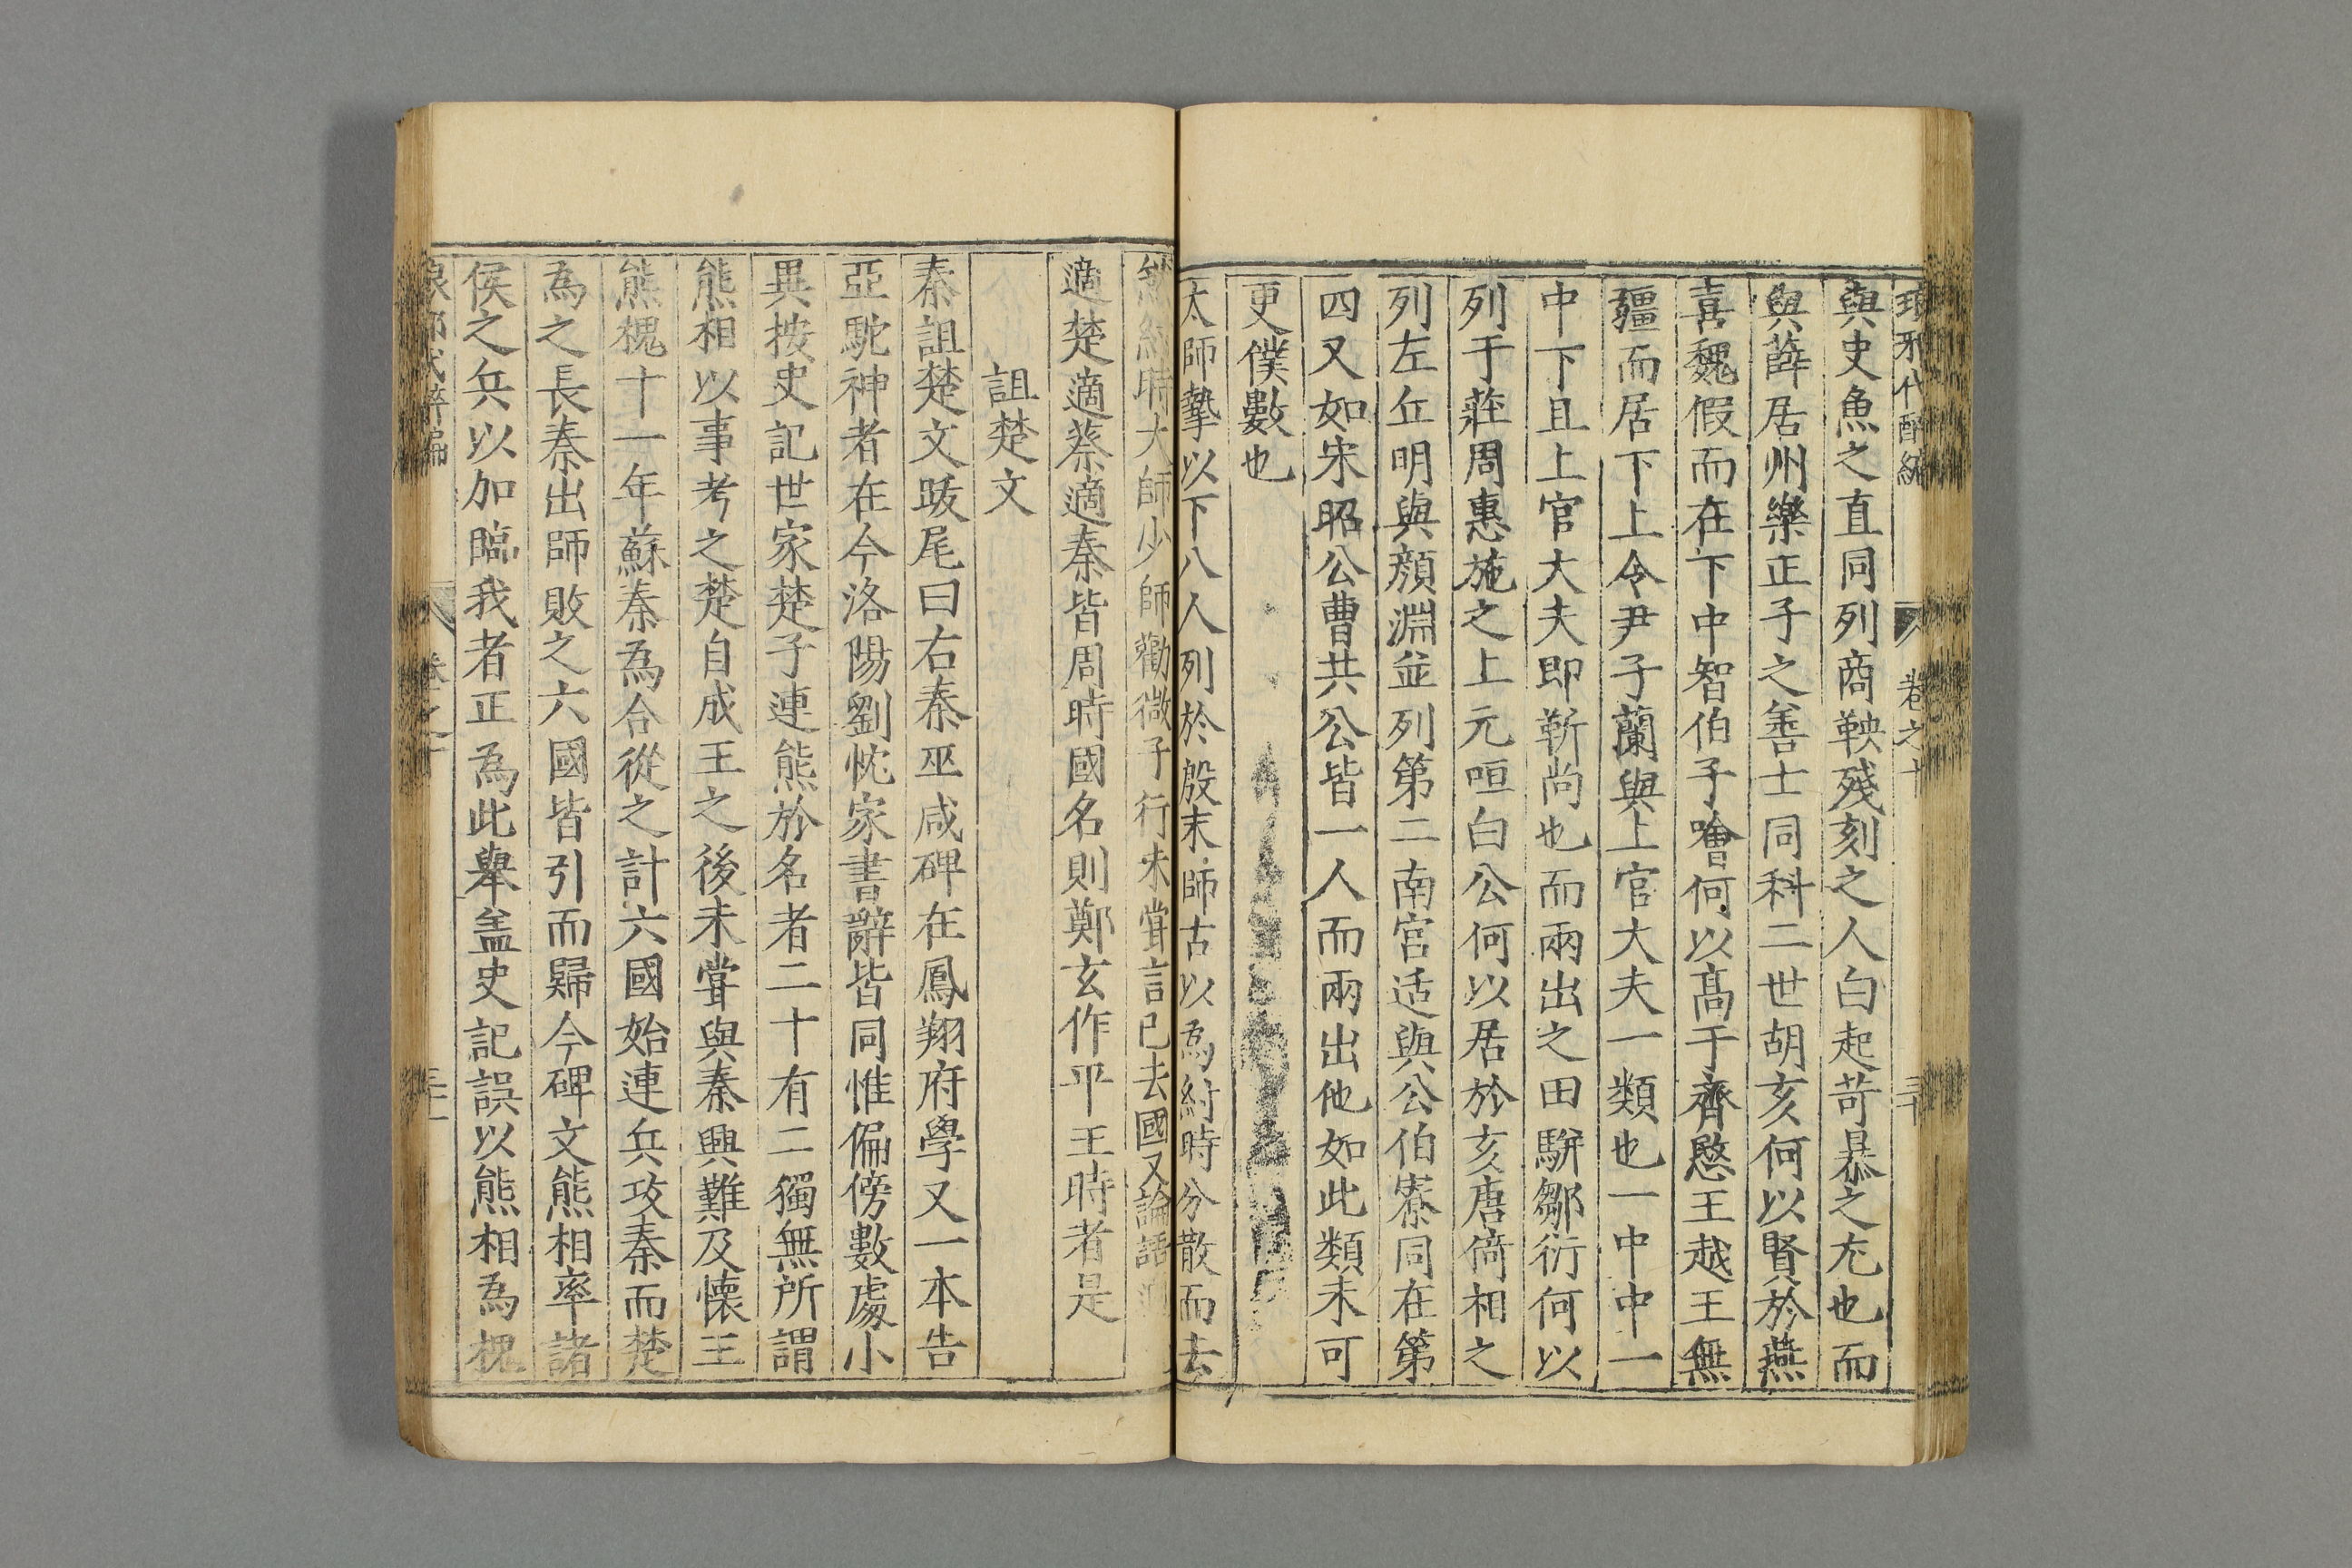 琅邪代醉編 卷之十 三十
與史魚之直同列商鞅殘刻之人白起苛暴之尤也而
與薛居州樂正子之善士同科二世胡亥何以賢於燕
喜魏假而在下中智伯子噲何以高于齊愍王越王無
疆而居下上令尹子蘭與上官大夫一類也一中中一
中下且上官大夫即靳尚也而兩出之田駢鄒衍何以
列于莊周惠施之上元咺白公何以居於亥唐倚相之
列左丘明與顏淵並列第二南宮适與公伯寮同在第
四又如宋昭公曹共公皆一人而兩出他如此類未可
更僕數也
太師摯以下八人列於殷末師古以為紂時分散而去
然紂時大師少師勸微子行未嘗言已去國又論語
適楚適蔡適秦皆周時國名則鄭玄作平王時者是
詛楚文
秦詛楚文跋尾曰右秦巫咸碑在鳳翔府學又一本告
亞駝神者在今洛陽劉忱家書辭皆同惟偏傍數處小
異按史記世家楚子連熊於名者二十有二獨無所謂
熊相以事考之楚自成王之後未嘗與秦興難及懷王
熊槐十一年蘇秦為合從之計六國始連兵攻秦而楚
為之長秦出師敗之六國皆引而歸今碑文熊相率諸
侯之兵以加臨我者正為此舉盖史記誤以熊相為槐
琅邪代醉編 卷之十 三十一